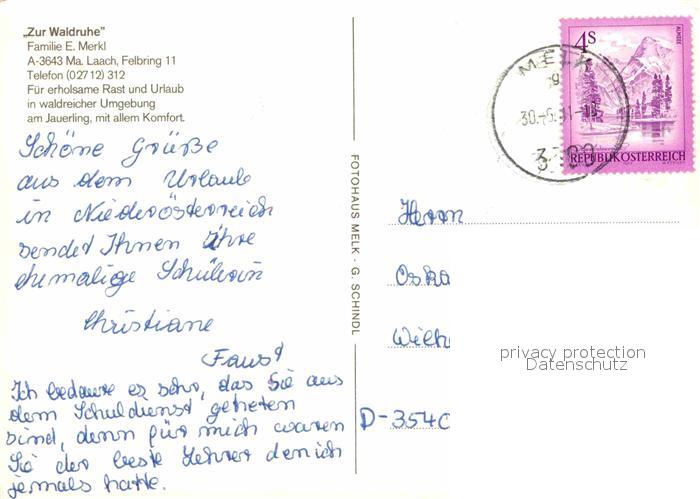 „Zur Waldruhe"
Familie E. Merkl
A-3643 Ma. Laach, Felbring 11
Telefon (0 27 12) 312
Für erholsame Rast und Urlaub
in waldreicher Umgebung
am Jauerling, mit allem Komfort.
Schöne Grüße
aus dem Urlaub
in Niederösterreich
sendet Ihnen Ihre
ehemalige Schülerin
Christiane
Faust
Ich bedaure es sehr, das Sie aus
dem Schuldienst getreten
sind, denn für mich waren
Sie der beste Lehrer den ich
jemals hatte.
FOTOHAUS MELK - G. SCHINDL
4S
ALMSEE
REPUBLIK ÖSTERREICH
MELK
3390
Herrn
Oska
Wilh
D-354
privacy protection
Datenschutz